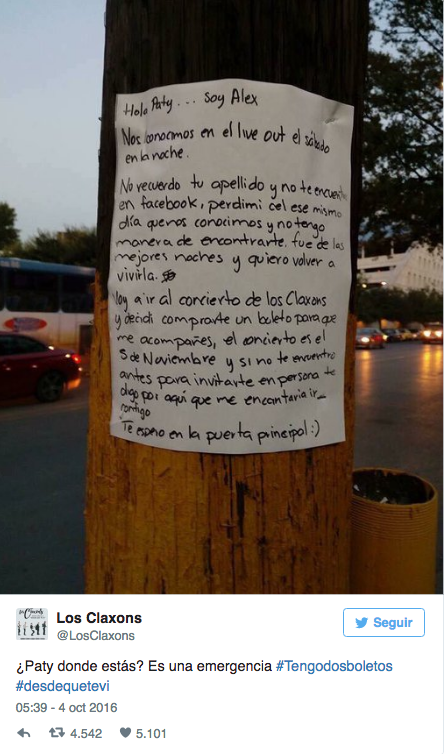 Hola Paty... Soy Alex
Nos conocimos en el live out el sábado
en la noche.
No recuerdo tu apellido y no te encuentro
en facebook, perdí mi cel ese mismo
día que nos conocimos y no tengo
manera de encontrarte. fue de las
mejores noches y quiero volver a
vivirla.
Voy a ir al concierto de los Claxons
y decidí comprarte un boleto para que
me acompañes, el concierto es el
5 de Noviembre y si no te encuentro
antes para invitarte en persona te
digo por aquí que me encantaria ir
contigo
Te espero en la puerta principal :)
Los Claxons
@LosClaxons
Seguir
¿Paty donde estás? Es una emergencia #Tengodosboletos
#desdequetevi
05:39 - 4 oct 2016
4.542 5.101